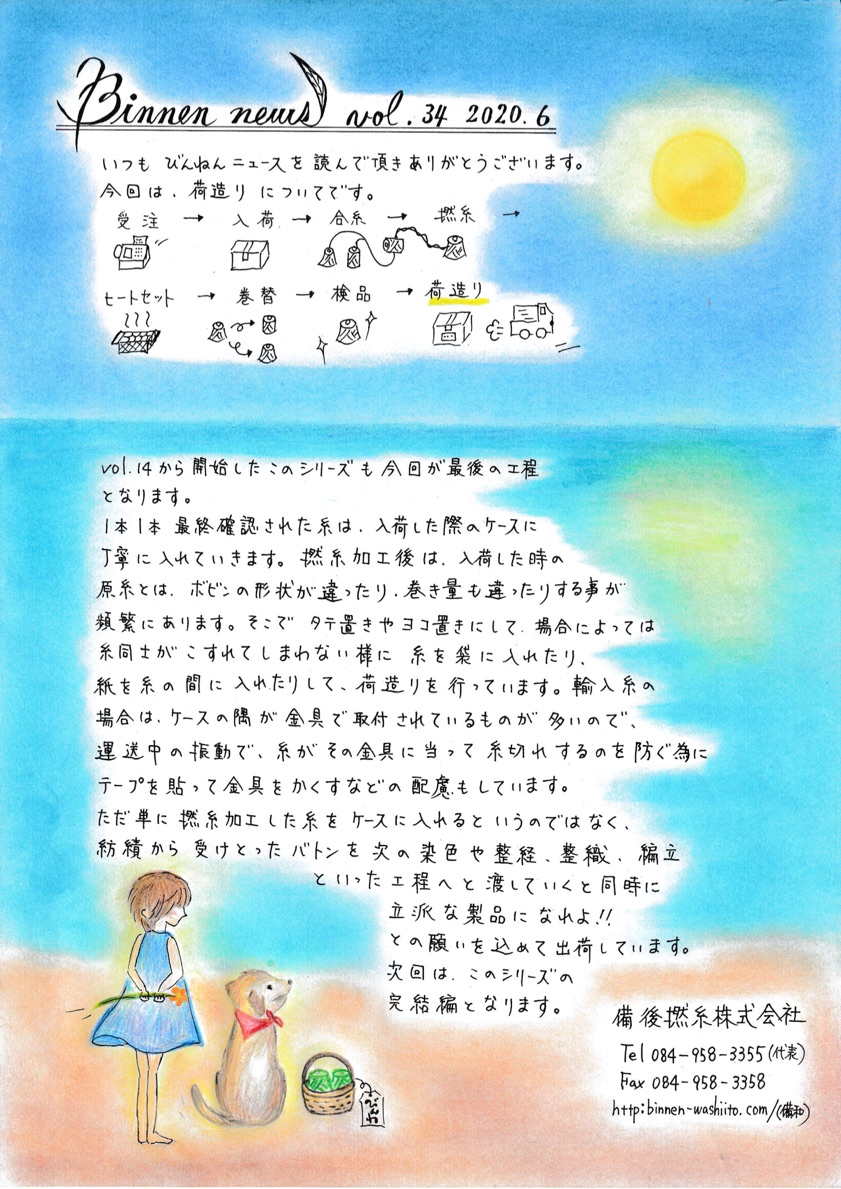 Binnen news vol.34 2020.6
いつも びんねんニュースを 読んで頂きありがとうございます。
今回は、荷造り についてです。
受注 → 入荷 → 合糸 → 撚糸 →
ヒートセット → 巻替 → 検品 → 荷造り
vol.14から開始したこのシリーズも 今回が最後の工程
となります。
1本1本 最終確認された糸は、入荷した際のケースに
丁寧に入れていきます。撚糸加工後は、入荷した時の
原糸とは、ボビンの形状が違ったり、巻き量も違ったりする事が
頻繁にあります。そこで タテ置きやヨコ置きにして、場合によっては
糸同士が こすれてしまわない様に 糸を袋に入れたり、
紙を糸の間に入れたりして、荷造りを行っています。輸入糸の
場合は、ケースの隅が金具で取付されているものが多いので、
運送中の振動で、糸がその金具に当って糸切れするのを防ぐ為に
テープを貼って金具をかくすなどの配慮もしています。
ただ単に 撚糸加工した糸を ケースに入れるというのではなく、
紡績から受けとったバトンを 次の染色や整経、整織、編立
といった工程へと渡していくと同時に
立派な製品になれよ!!
との願いを込めて出荷しています。
次回は、このシリーズの
完結編となります。
備後撚糸株式会社
Tel 084-958-3355(代表)
Fax 084-958-3358
http:binnen-washiito.com/(備和)
びんわ